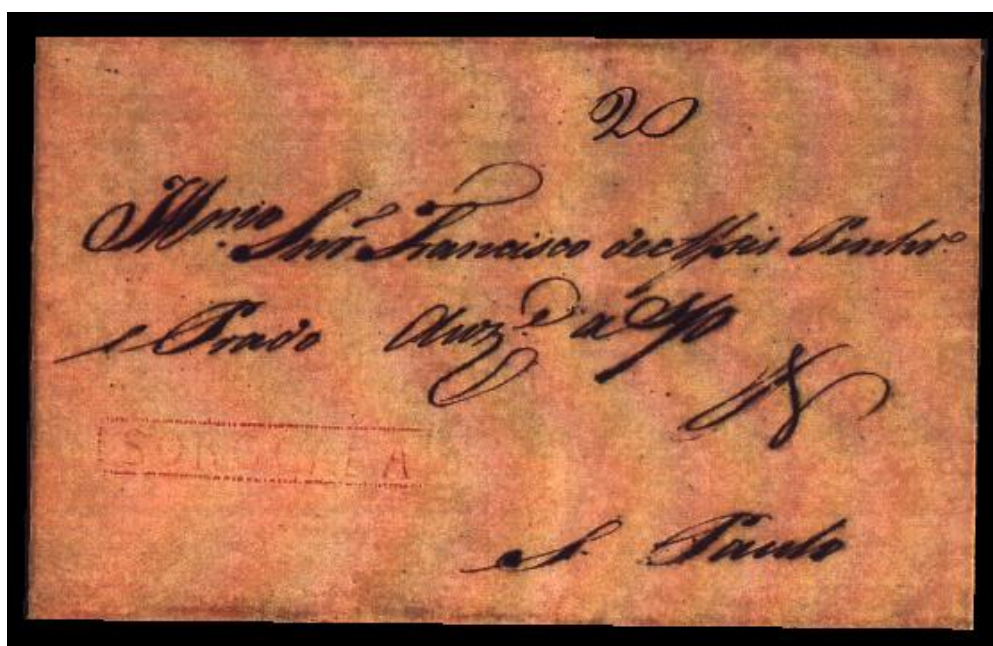 20
Illmo. Snr. Francisco de Assis Pinhro.
e Prado Auz.e a Mo
SOROCABA
S. Paulo